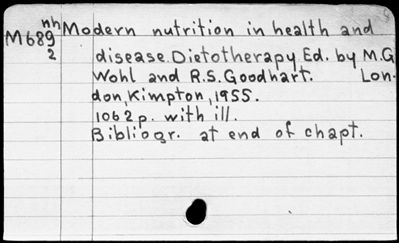 nh
M689 Modern nutrition in health and
2
disease. Dietotherapy. Ed. by M.G
Wohl and R.S. Goodhart. Lon-
don, Kimpton, 1955.
1062 p. with ill.
Bibliogr. at end of chapt.